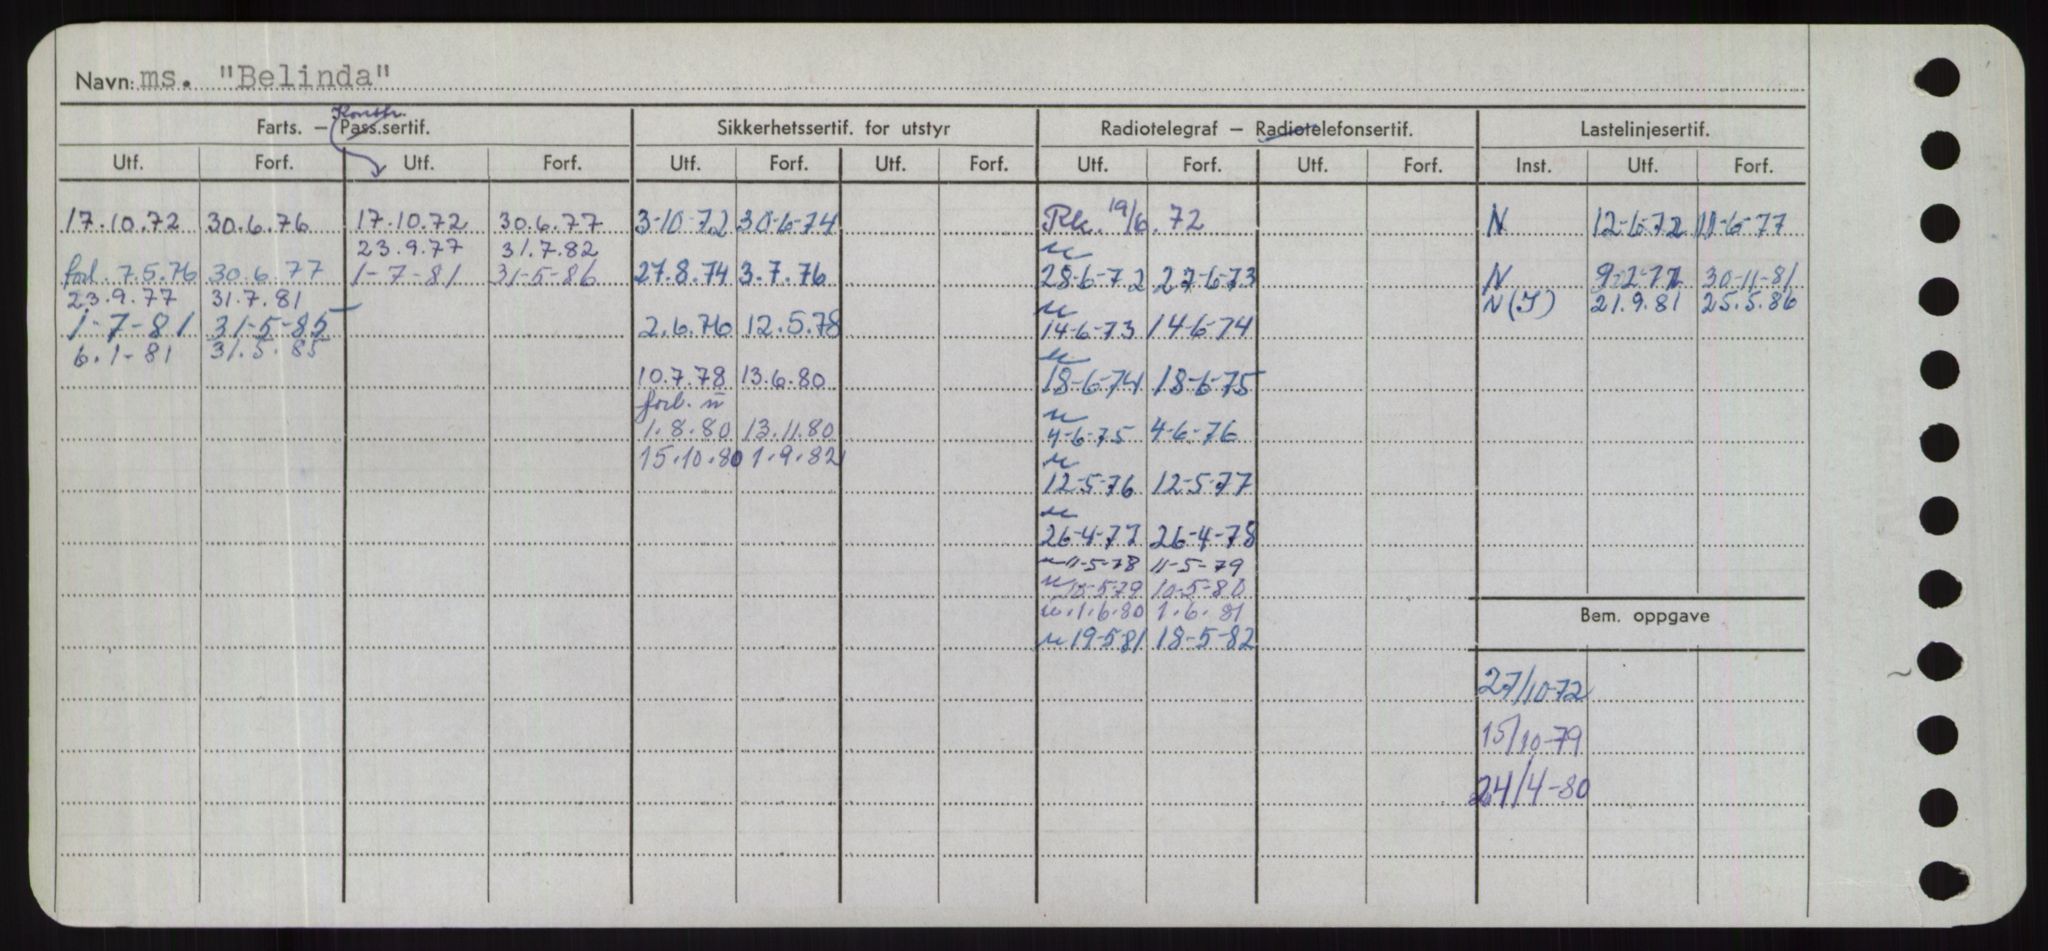 Navn: ms. "Belinda"
Konstr.
Farts. – Pass.sertif. Sikkerhetssertif. for utstyr Radiotelegraf – Radiotelefonsertif. Lastelinjesertif.
Utf. Forf. Utf. Forf. Utf. Forf. Utf. Forf. Utf. Forf. Utf. Forf. Inst. Utf. Forf.
17.10.72 30.6.76 17.10.72 30.6.77 3-10-72 30-6-74 Rk. 19/6.72 N 12-6-72 11-6-77
23.9.77 31.7.82
forl. 7.5.76 30.6.77 1-7-81 31-5-86 27.8.74 3.7.76 28-6-72 27-6-73 N 30-11-81
23.9.77 31.7.81 N(I) 21.9.81 25.5.86
1-7-81 31-5-85 2.6.76 12.5.78 14-6-73 14-6-74
6.1-81 31.5.85
10.7.78 13.6.80 18-6-74 18-6-75
forl. n
1.8.80 13.11.80 4-6-75 4-6-76
15.10.80 1.9.82
12-5-76 12-5-77
26-4-77 26-4-78
n 11-5-78 11-5-79
n 10-5-79 10-5-80
n.1.6.80 1.6.81
Bem. oppgave
n 19-5-81 18-5-82
27/10-72
15/10-79
24/4-80